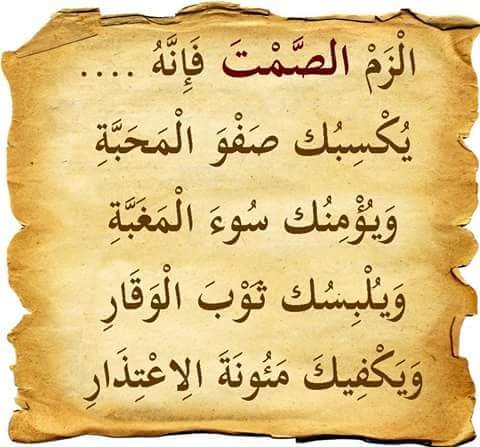 الْزَمْ الصَّمْتَ فَإِنَّهُ ....
يُكْسِبُك صَفْوَ الْمَحَبَّةِ
وَيُؤْمِنُك سُوءَ الْمَغَبَّةِ
وَيُلْبِسُك ثَوْبَ الْوَقَارِ
وَيَكْفِيكَ مَئُونَةَ الِاعْتِذَارِ